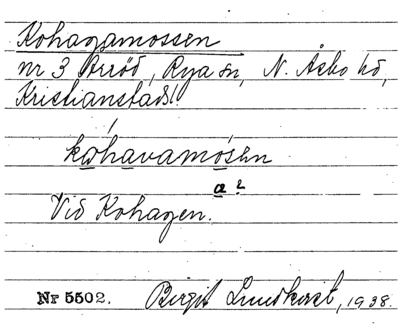 Kohagamossen
nr 3 Arröd, Rya sn, N. Åsbo hd,
Kristianstads l.
kohavamosen
a ?
Vid Kohagen.
Nr 5502. Birgit Lundkvist, 1938.